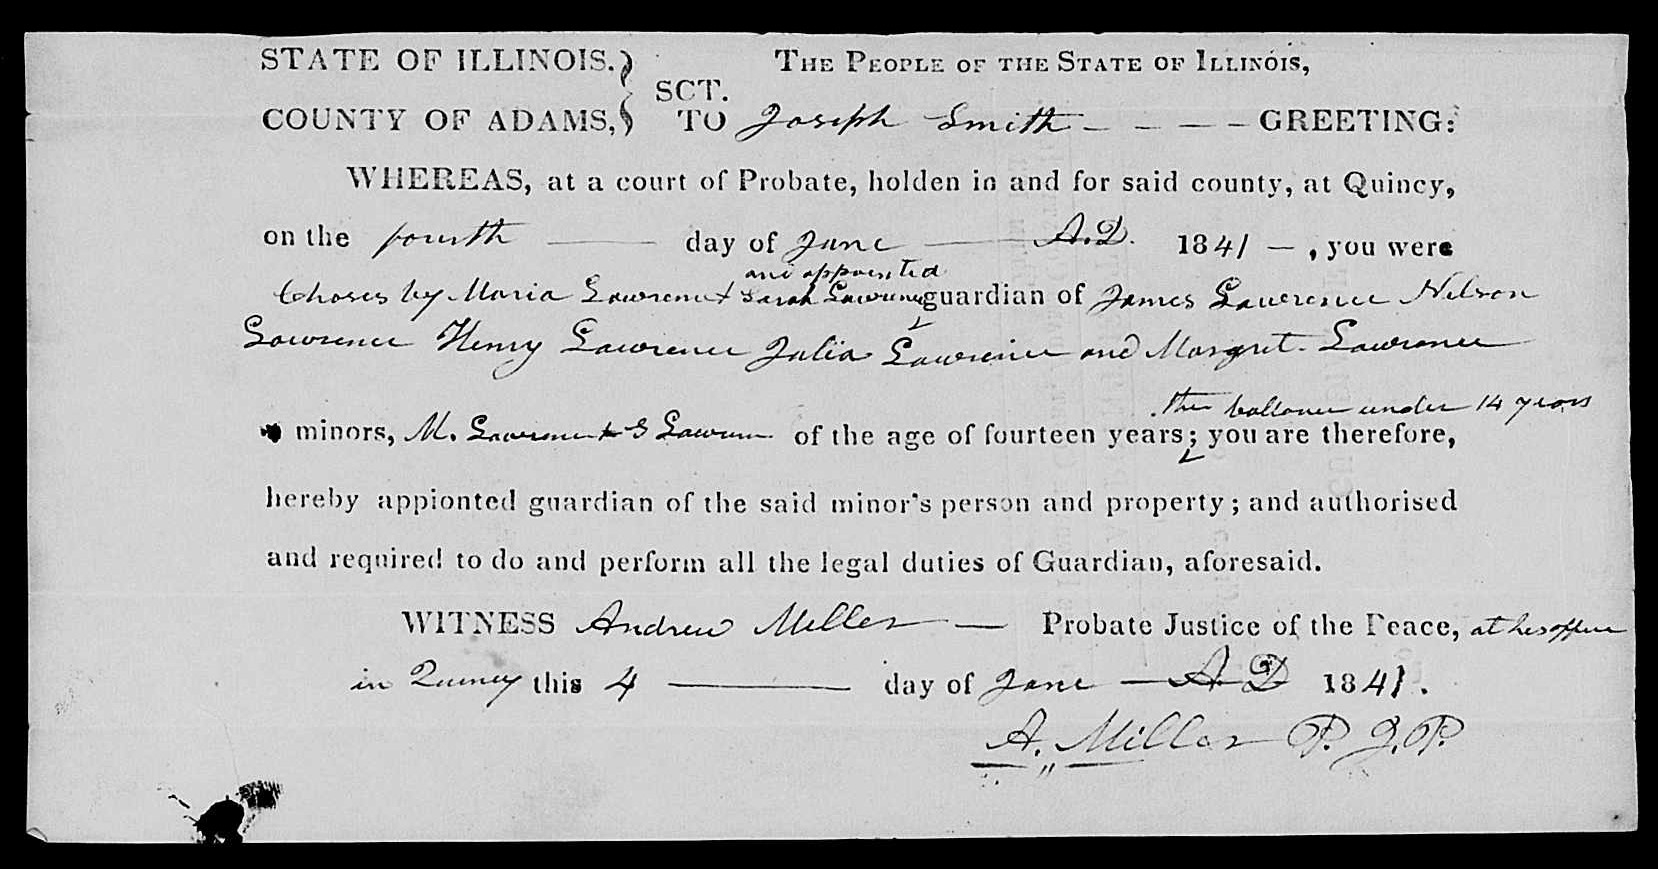 STATE OF ILLINOIS. } SCT. THE PEOPLE OF THE STATE OF ILLINOIS,
COUNTY OF ADAMS, } TO Joseph Smith - - - - GREETING:
WHEREAS, at a court of Probate, holden in and for said county, at Quincy,
on the fourth —— day of June —— A.D. 1841 — , you were
and appointed
Choses by Maria Lawrence & Sarah Lawrence guardian of James Lawrence Nelson
Lawrence Henry Lawrence Julia Lawrence and Margret Lawrence
the ballance under 14 years
minors, M. Lawrence & S Lawrence of the age of fourteen years; you are therefore,
hereby appionted guardian of the said minor's person and property; and authorised
and required to do and perform all the legal duties of Guardian, aforesaid.
WITNESS Andrew Miller — Probate Justice of the Peace, at his office
in Quincy this 4 —— day of June — A.D 1841.
A. Miller P. J. P.